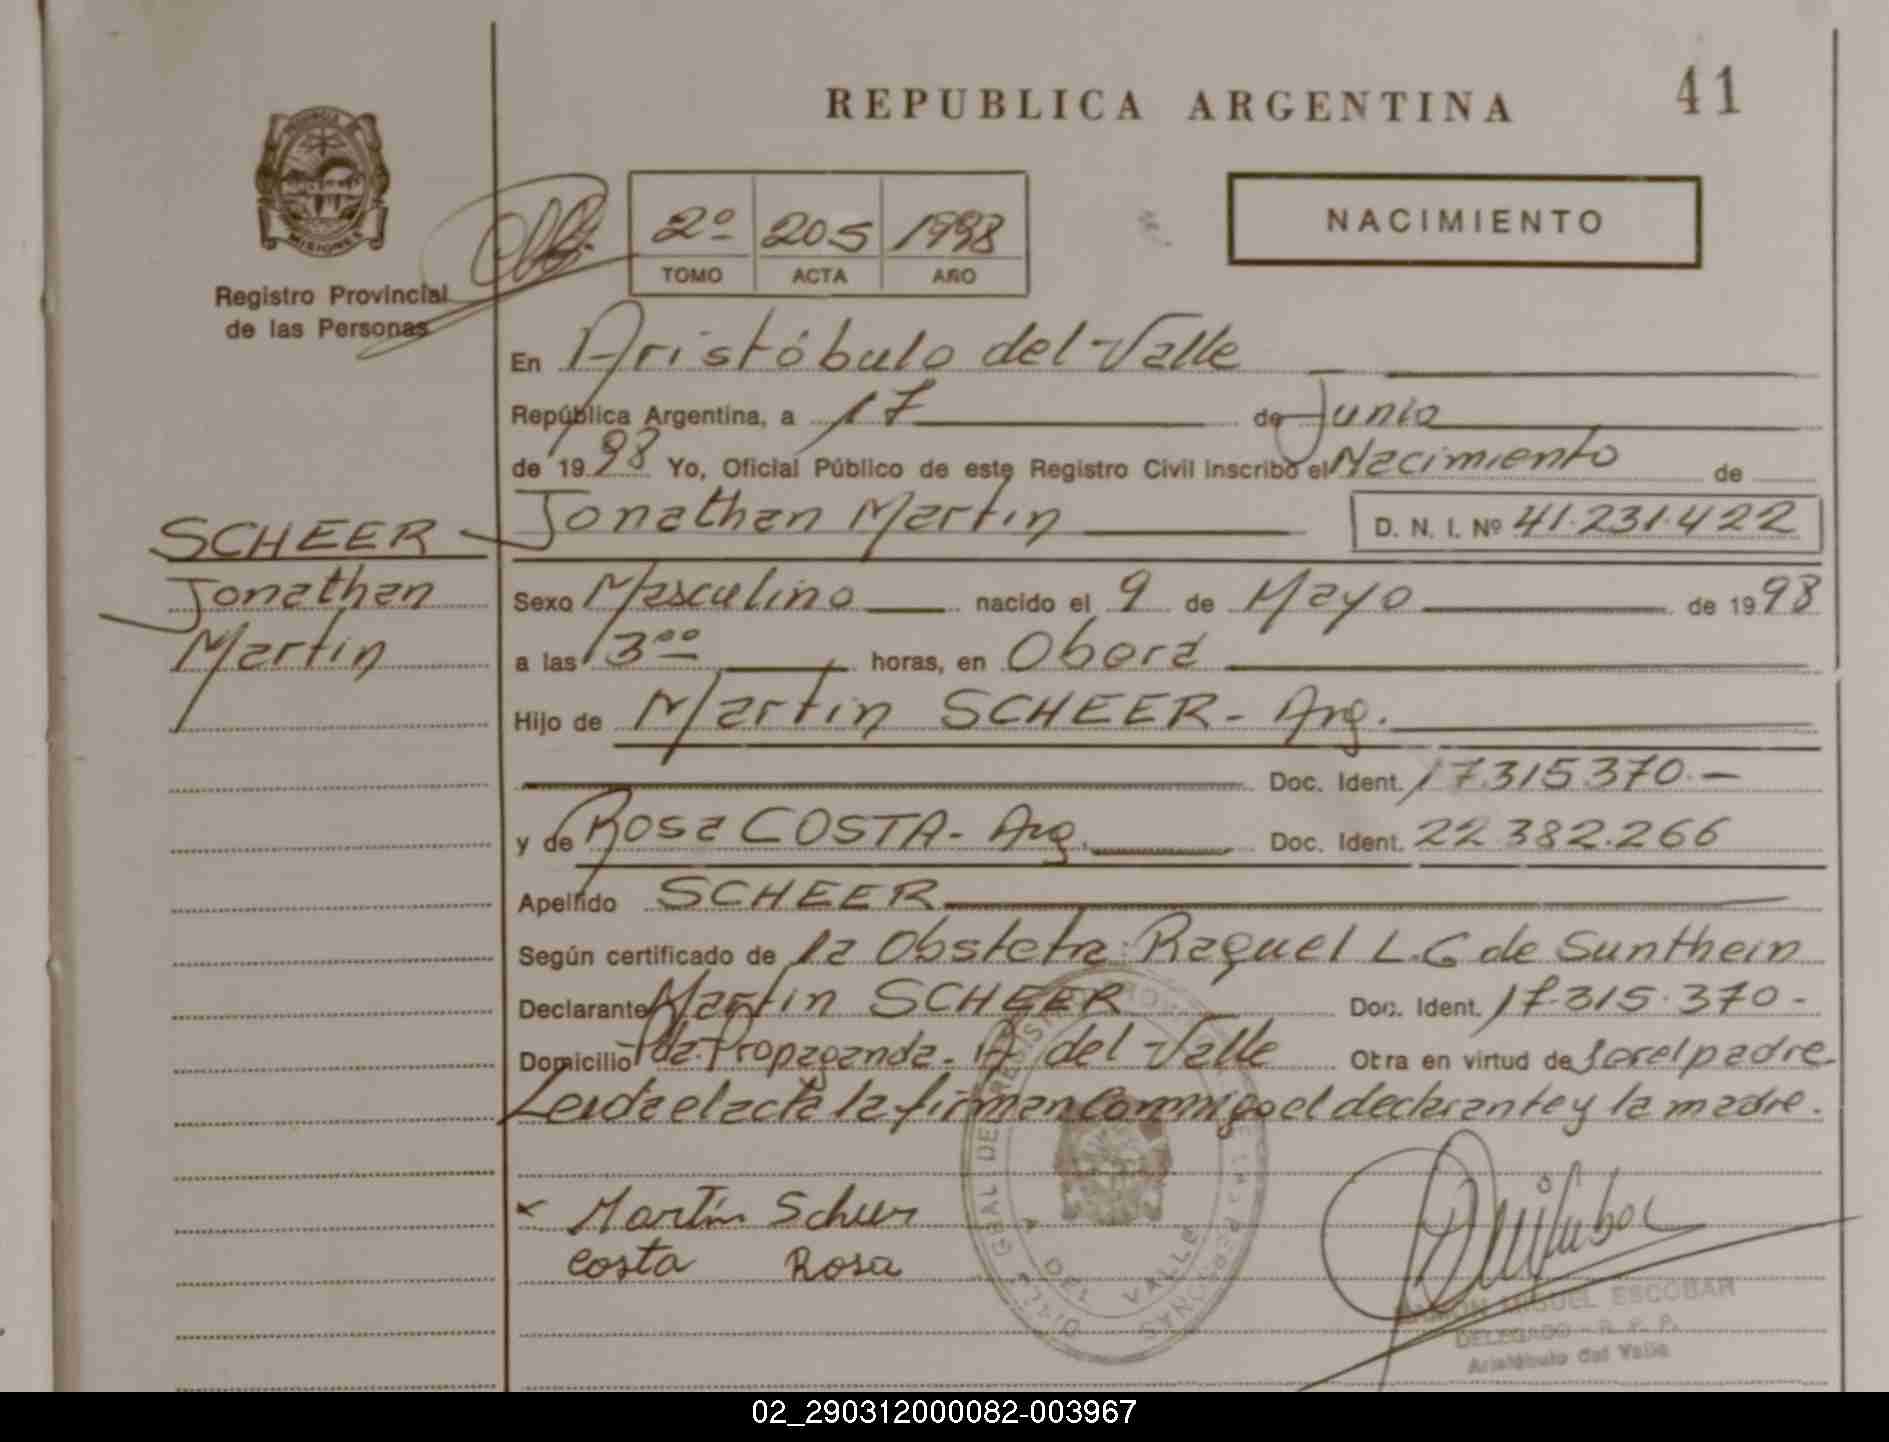 41
REPUBLICA ARGENTINA
MISIONES
Registro Provincial
de las Personas
2º 205 1998
TOMO ACTA AÑO
NACIMIENTO
En Aristóbulo del Valle
República Argentina, a 17 de Junio
de 1998 Yo, Oficial Público de este Registro Civil inscribo el Nacimiento de
Jonathan Martin D. N. I. Nº 41.231.422
SCHEER
Jonathan
Martin
Sexo Masculino nacido el 9 de Mayo de 1998
a las 13⁰⁰ horas, en Oberá
Hijo de Martin SCHEER - Arg.
Doc. Ident. 17.315.370.-
y de Rosa COSTA - Arg. Doc. Ident. 22.382.266
Apellido SCHEER
Según certificado de la Obstetra: Raquel L.G de Sunthein
Declarante Martin SCHEER Doc. Ident. 17.315.370-
Domicilio Pda. Propaganda - A del Valle Otra en virtud de ser el padre-
Leida el acta la firman conmigo el declarante y la madre.
x Martín Scheer
Costa Rosa
A DEL VALLE
RAMON MIGUEL ESCOBAR
DELEGADO - R. P. P.
Aristóbulo del Valle
02_290312000082-003967